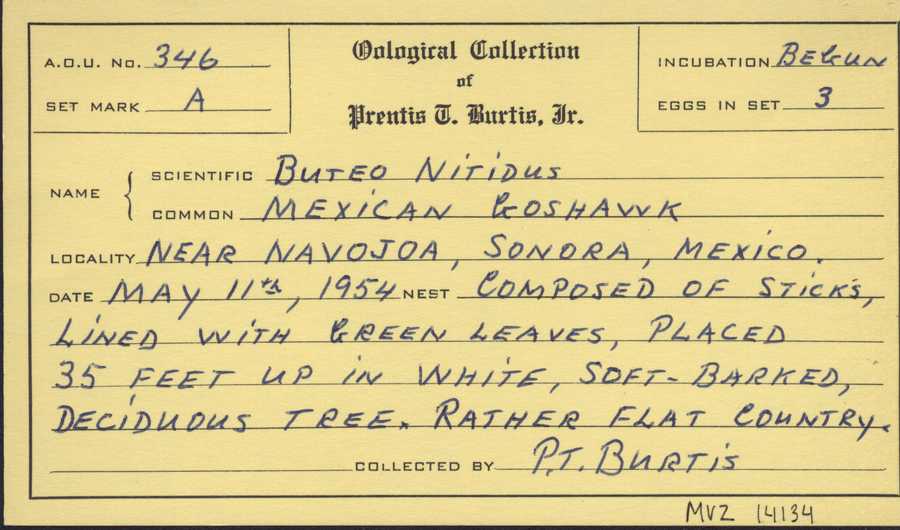 A.O.U. No. 346
SET MARK A
Oological Collection
of
Prentis T. Burtis, Jr.
INCUBATION BEGUN
EGGS IN SET 3
NAME
SCIENTIFIC BUTEO NITIDUS
COMMON MEXICAN GOSHAWK
LOCALITY NEAR NAVOJOA, SONORA, MEXICO.
DATE MAY 11th, 1954 NEST COMPOSED OF STICKS,
LINED WITH GREEN LEAVES, PLACED
35 FEET UP IN WHITE, SOFT-BARKED,
DECIDUOUS TREE. RATHER FLAT COUNTRY.
COLLECTED BY P.T. BURTIS
MVZ 14134